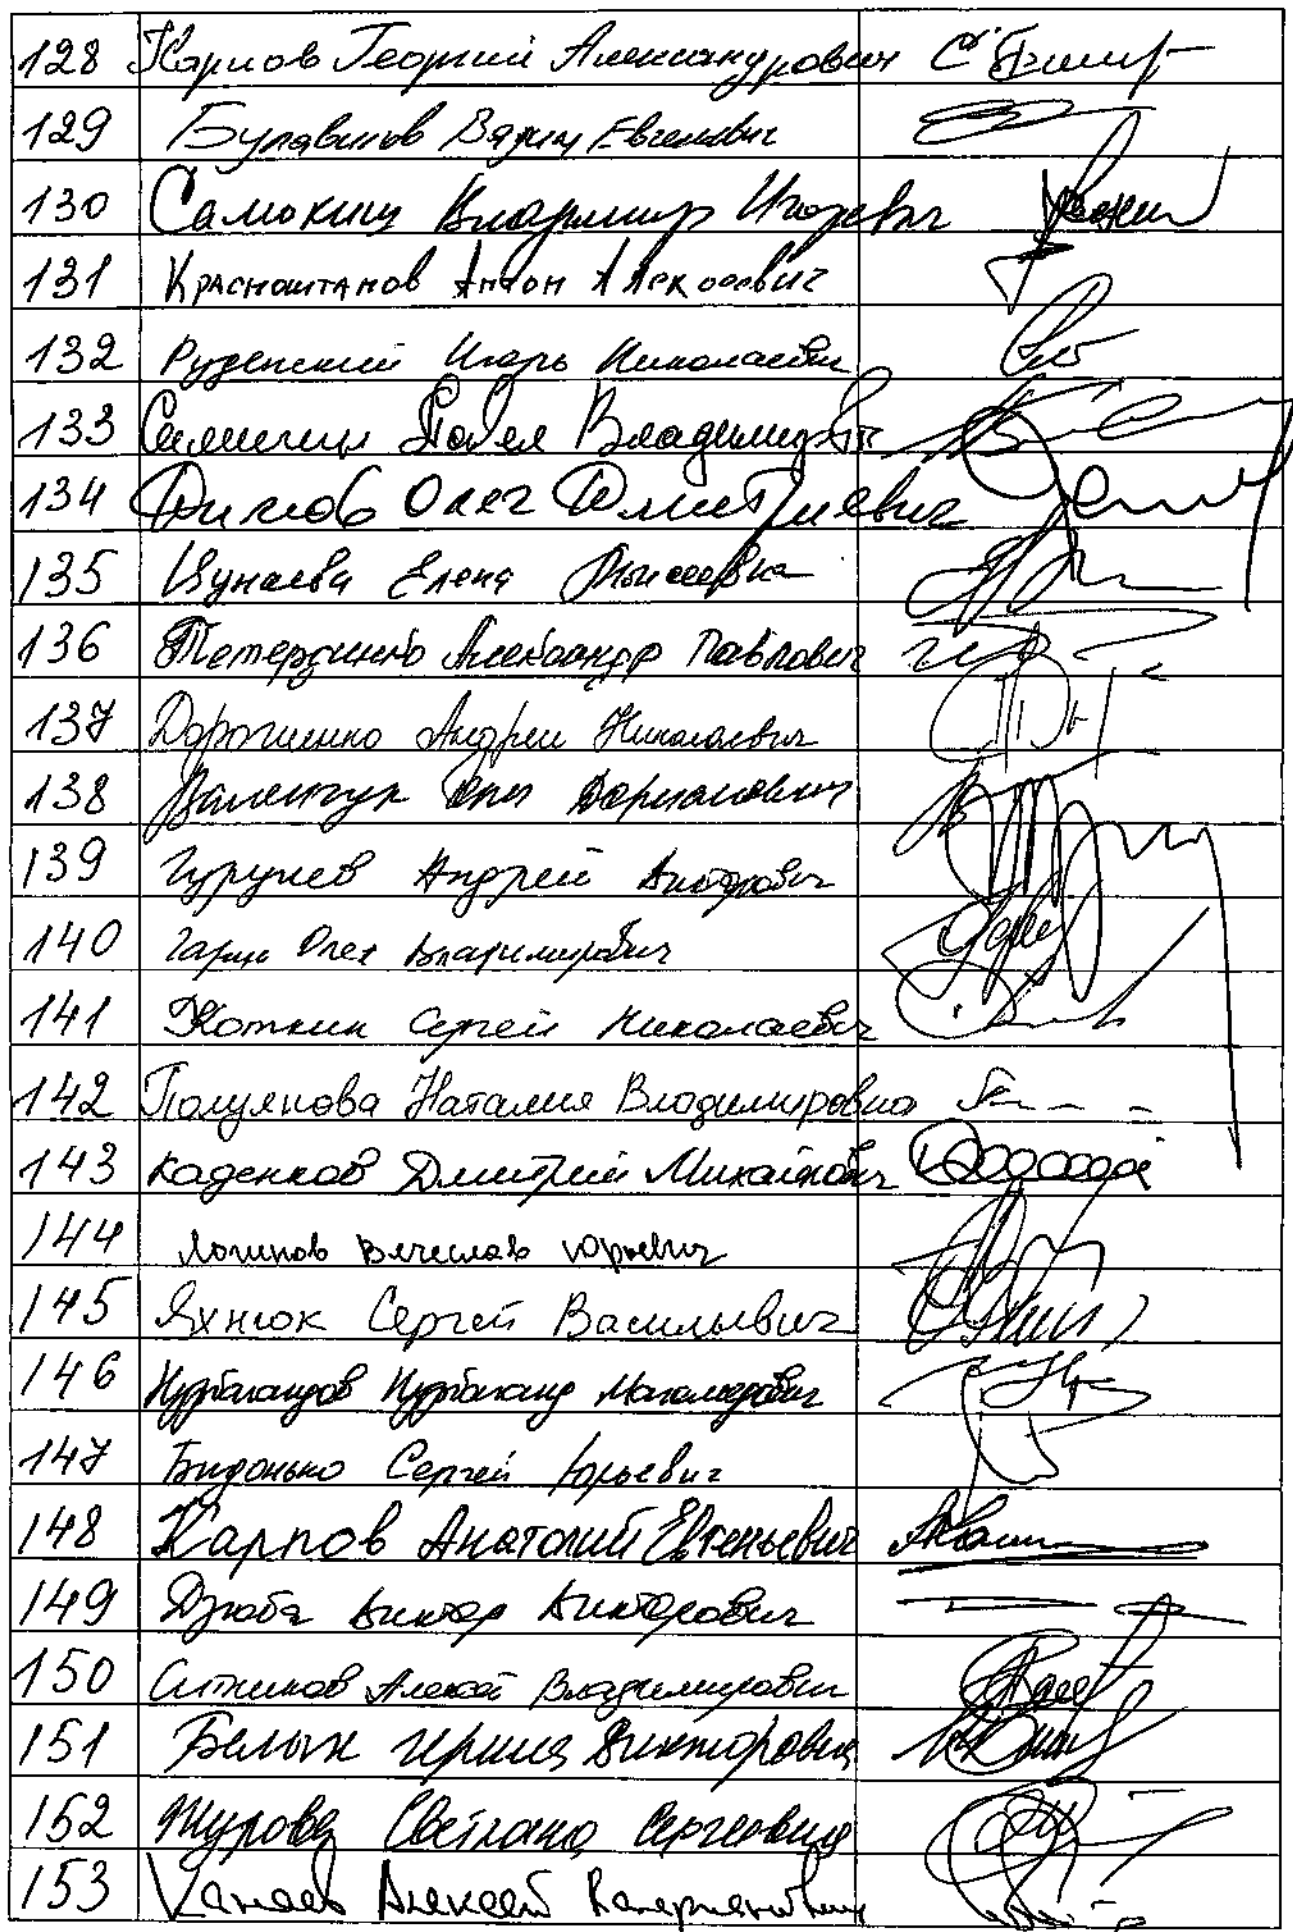 128 Карлов Георгий Александрович
129 Булавинов Вадим Евгеньевич
130 Самокиш Владимир Игоревич
131 Красноштанов Антон Алексеевич
132 Руденский Игорь Николаевич
133 Симигин Павел Владимирович
134 Димов Олег Дмитриевич
135 Цунаева Елена Моисеевна
136 Тетердинко Александр Павлович
137 Дорошенко Андрей Николаевич
138 Валенчук Олег Дорианович
139 Гурулев Андрей Викторович
140 Гарин Олег Владимирович
141 Коткин Сергей Николаевич
142 Полуянова Наталия Владимировна
143 Каденков Дмитрий Михайлович
144 Логинов Вячеслав Юрьевич
145 Яхнюк Сергей Васильевич
146 Нурбагандов Нурбаганд Магомедович
147 Бидонько Сергей Юрьевич
148 Карпов Анатолий Евгеньевич
149 Дзюба Виктор Викторович
150 Ситников Алексей Владимирович
151 Белых Ирина Викторовна
152 Журова Светлана Сергеевна
153 Канаев Алексей Валерианович